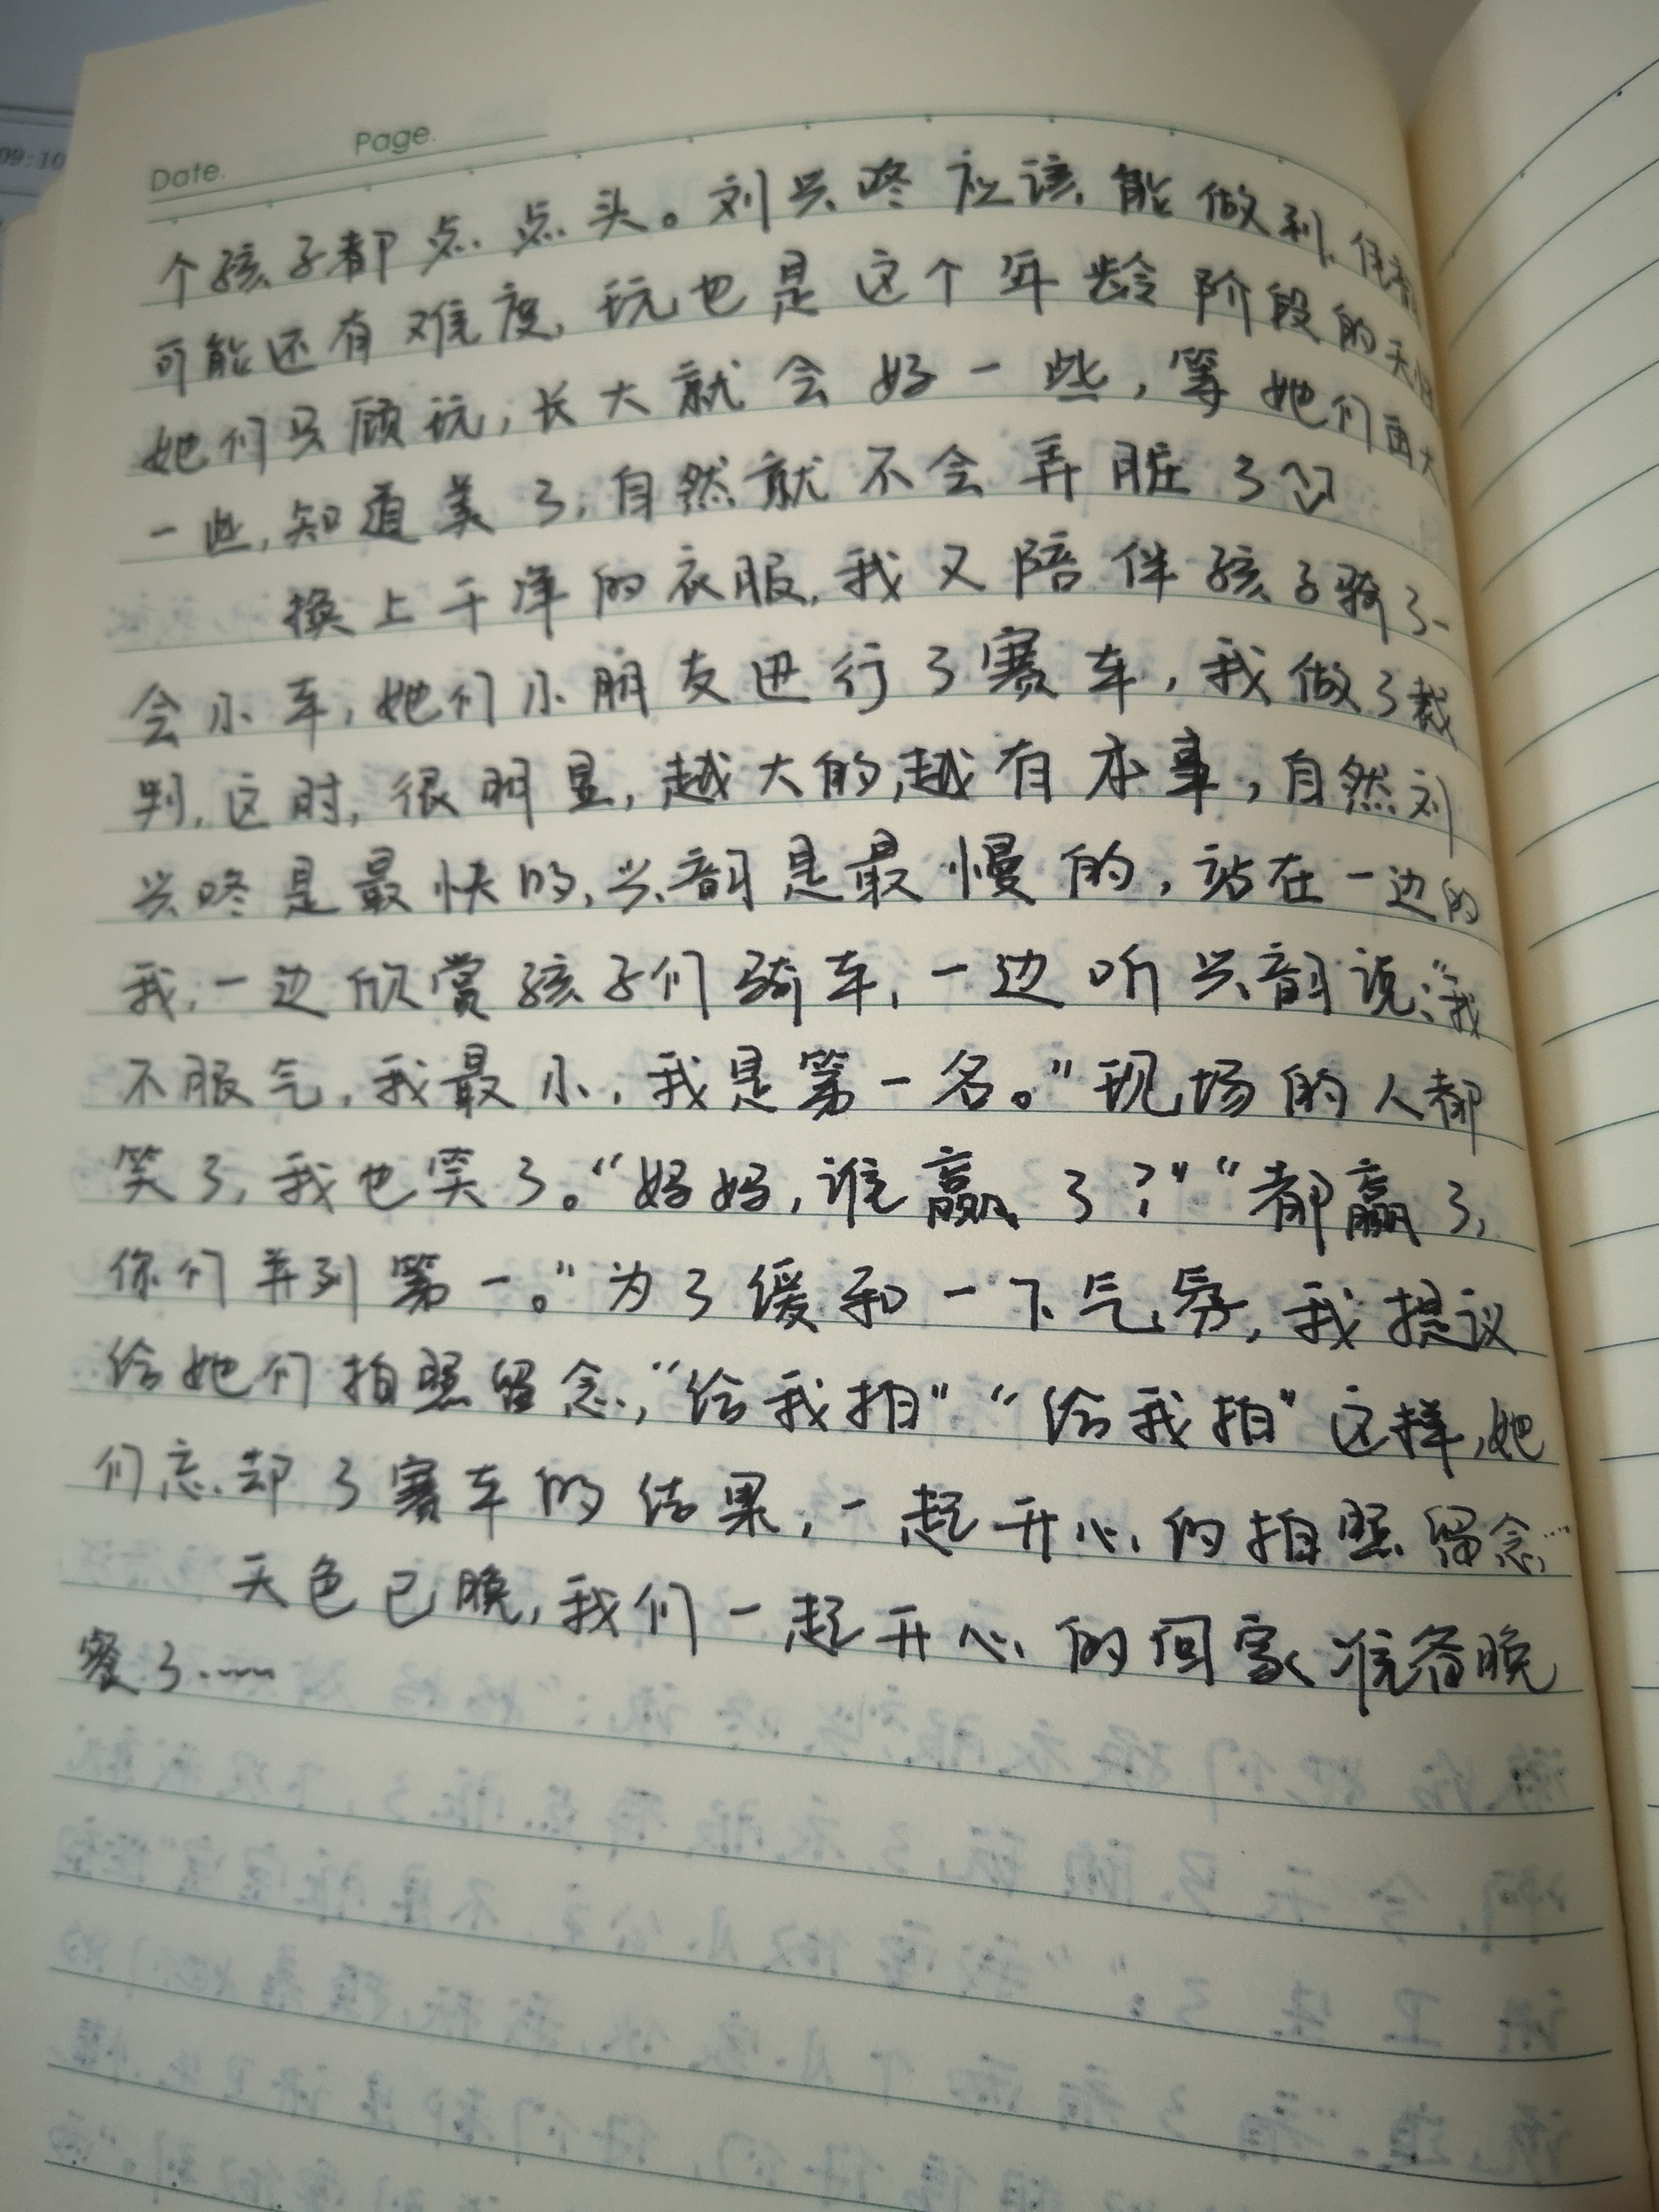 09:10
Date. Page.
个孩子都点点头。刘兴咚应该能做到,
可能还有难度,玩也是这个年龄阶段的天性
她们只顾玩,长大就会好一些,等她们再大
一些,知道美了,自然就不会弄脏了
换上干净的衣服,我又陪伴孩子骑了一
会小车,她们小朋友进行了赛车,我做了裁
判,这时,很明显,越大的,越有本事,自然刘
兴咚是最快的,兴韵是最慢的,站在一边的
我,一边欣赏孩子们骑车,一边听兴韵说:“我
不服气,我最小,我是第一名。”现场的人都
笑了,我也笑了。“妈妈,谁赢了?”“都赢了,
你们并列第一。”为了缓和一下气氛,我提议
给她们拍照留念,“给我拍”“给我拍”这样,她
们忘却了赛车的结果,一起开心的拍照留念……
天色已晚,我们一起开心的回家准备晚
餐了……